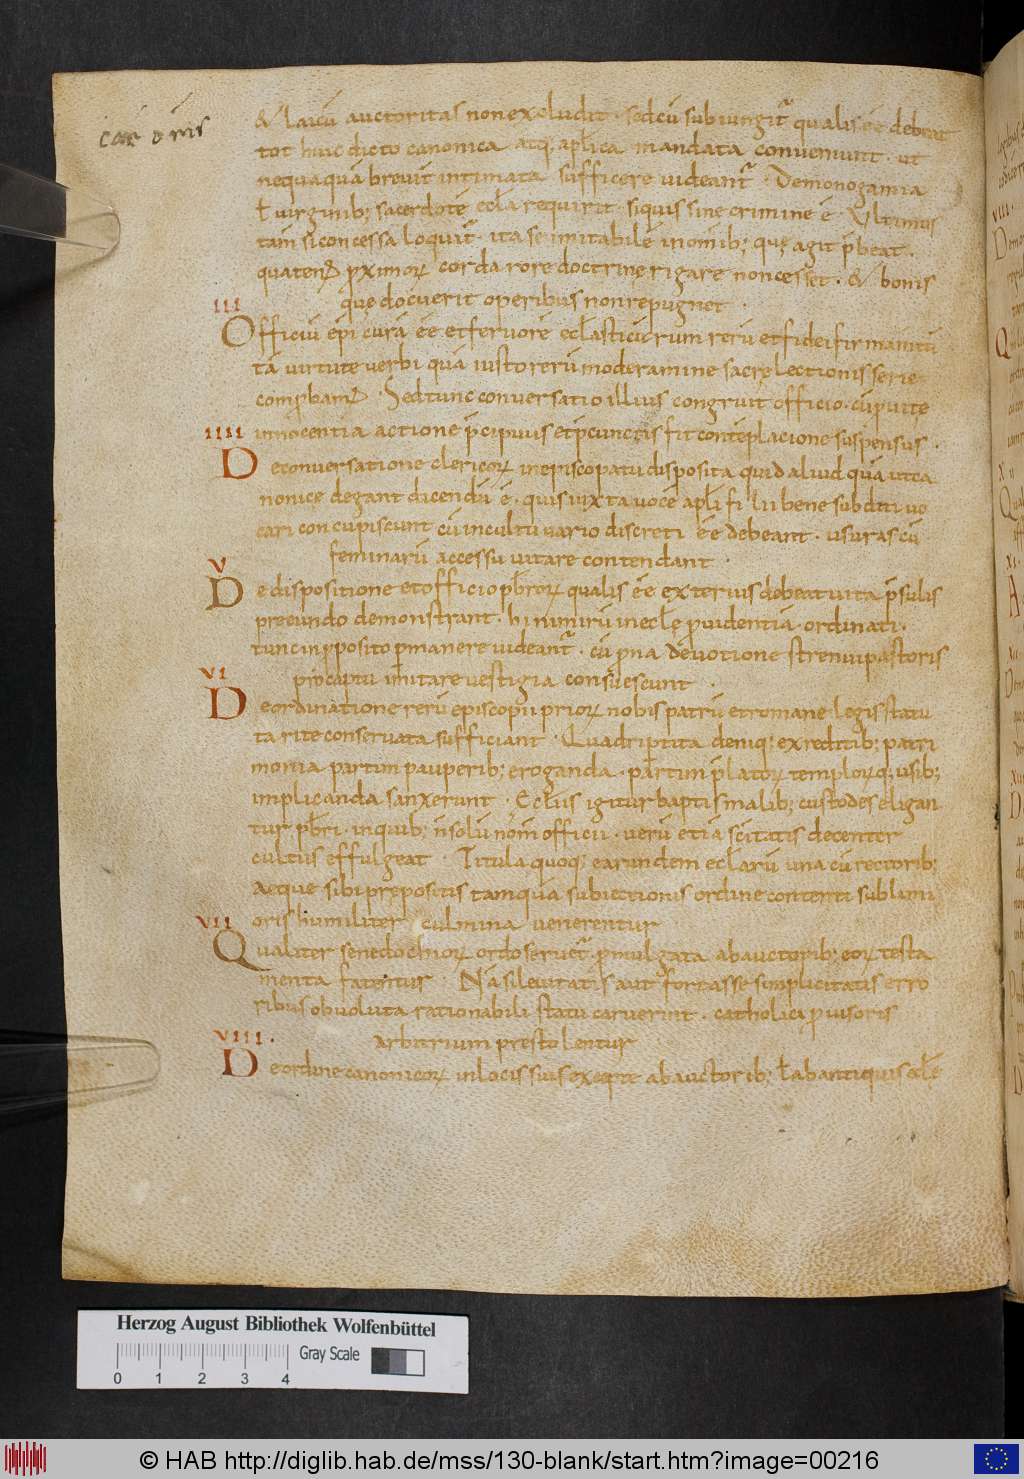 canonis
& laicū auctoritas non excludit · sed cū subiungit͛ qualis ēē debeat
tot huic dicto canonica atq; apl̄ica mandata conveniunt · ut
nequaquā brevit̄ intimata sufficere videant͛ · De monogamia
ł virginib; sacerdotē eccl̄a requirit · siquis sine crimine ē · Ultimus
tam si concessa loquit͛ · ita se imitabilē in om̄ib; que agit p̄beat ·
quaten; p̱ximoꝝ corda rore doctrine rigare non cesset · & bonis
que docuerit operibus non repugnet ·
III
Officiū ep̄i curā ēē et fervorē eccl̄asticarum rerū et fidei firmamtū
tā virtute verbi quā iusto rerū moderamine sacre lectionis serie
comp̱bam; · Sed tunc conversatio illius congruit officio · cū p̱ vite
IIII innocentia actione p̄cipuus et p̄ cunctis fit contēplacione suspensus ·
De conversatione clericoꝝ in episcopatu disposita quid aliud quā ut ca
nonice degant dicendū ē · qui siuxta vocē apl̄i filii bene subditi vo
cari concupiscunt cū incultu vario discreti ēē debeant · usuras cū
feminarū accessu vitare contendant ·
V
De dispositione et officio p̄br̄oꝝ qualis ēē exterius debeat vita p̄sulis
preeundo demonstrant · hi nimirū in eccl̄e p̱videntiā · ordinati ·
tunc in p̱posito p̱manere videant͛ · cū p̱na devotione strenui pastoris
VI pro captu imitare vestigia consuescunt ·
De ordinatione rerū episcopii prioꝝ nobis patrū et romane legis statu
ta rite conservata sufficiant · Quadriptita deniq; ex reditib; patri
monia partim pauperib; eroganda · partim p̄latoꝝ temploꝝq; usib;
implicanda sanxerunt · Eccl̄iis igitur baptismalib; custodes eligan
tur p̄br̄i · in quib; n̄ solū nōm officii · verū etiā sc̄itatis decenter
cultus effulgeat · Titula quoq; earundem eccl̄arū una cū rectorib;
aeque sibi prepositis tamquā subiectionis ordine contenti sublimi
VII oris humiliter culmina venerentur
Qualiter senedochioꝝ ordo servet͛ p̱mulgata ab auctorib; eoꝝ testa
menta fatentur · Nā si levitatis aut fortasse simplicitatis erro
ribus obvoluta rationabili statu caruerint · catholici p̱visoris
VIII · arbitrium prestolentur
De ordine canonicoꝝ in locis suis excepta ab auctorib; ł ab antiquis eccl̄e
Herzog August Bibliothek Wolfenbüttel
Gray Scale
0 1 2 3 4
© HAB http://diglib.hab.de/mss/130-blank/start.htm?image=00216